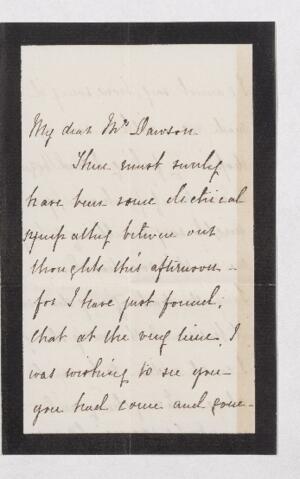 My dear Mr Dawson
There must surely
have been some electrical
sympathy between our
thoughts this afternoon -
for I have just found,
that at the very time, I
was wishing to see you -
you had come and gone -